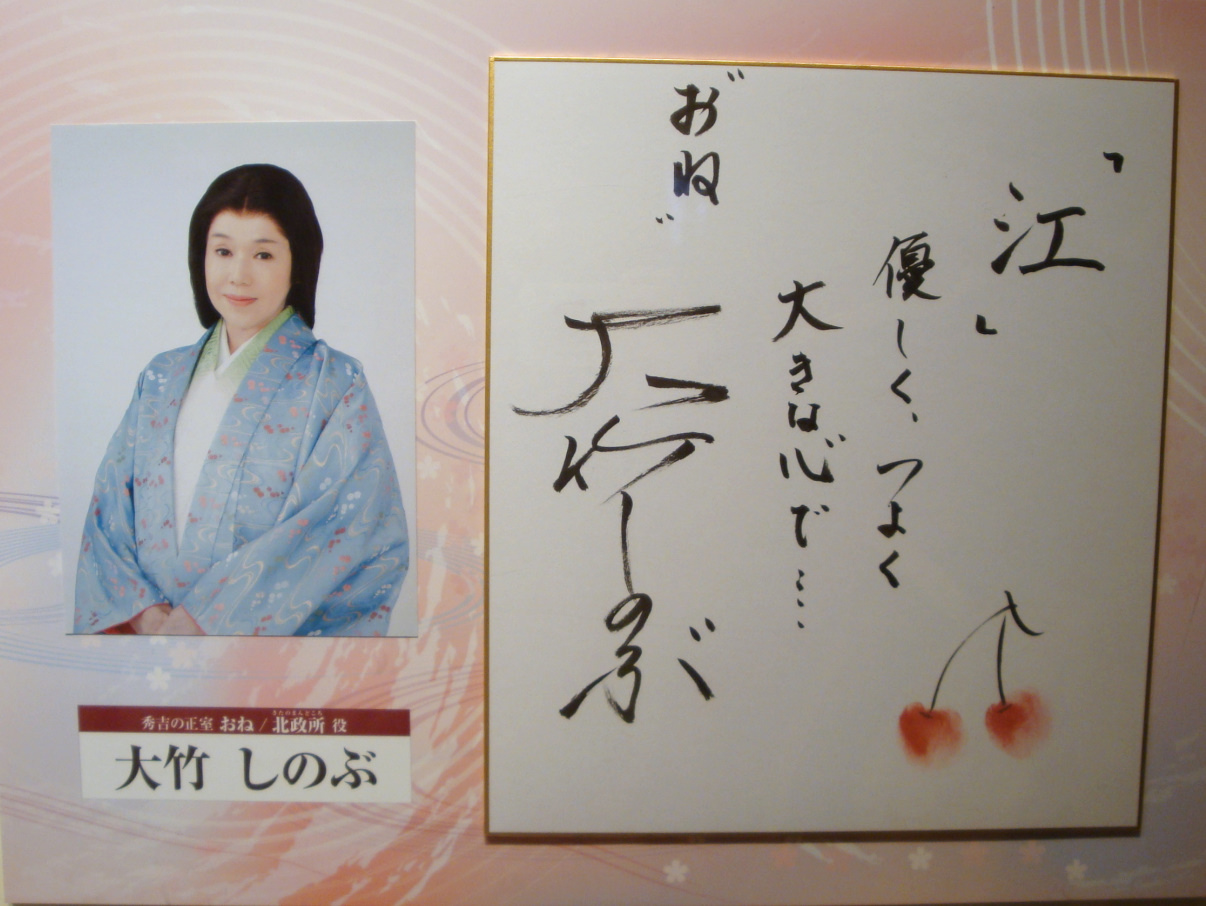 「江」
優しく、つよく
大きな心で…
"おね"
大竹しのぶ
秀吉の正室 おね / 北政所 役
きたのまんどころ
大竹 しのぶ